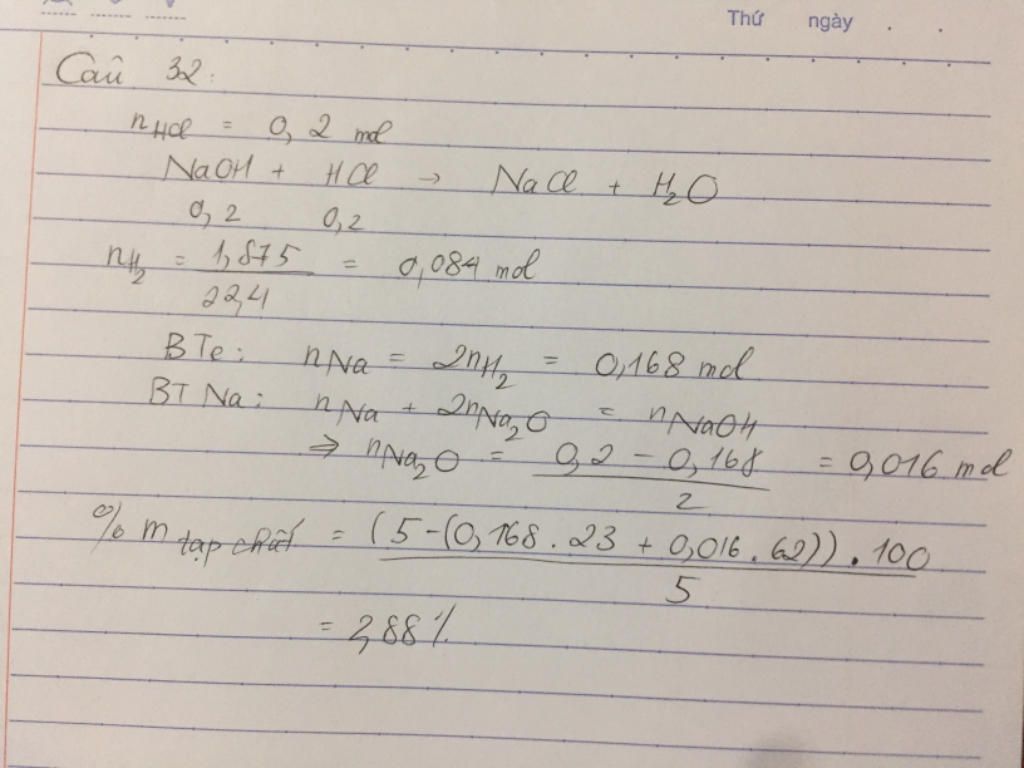 Thứ ngày . .
Câu 32:
nHCl = 0,2 mol
NaOH + HCl → NaCl + H₂O
0,2 0,2
nH₂ = 1,875 / 22,4 = 0,084 mol
BTe: nNa = 2nH₂ = 0,168 mol
BT Na: nNa + 2nNa₂O = nNaOH
⇒ nNa₂O = 0,2 - 0,168 / 2 = 0,016 mol
% m tạp chất = (5-(0,168.23 + 0,016.62)).100 / 5
= 2,88%